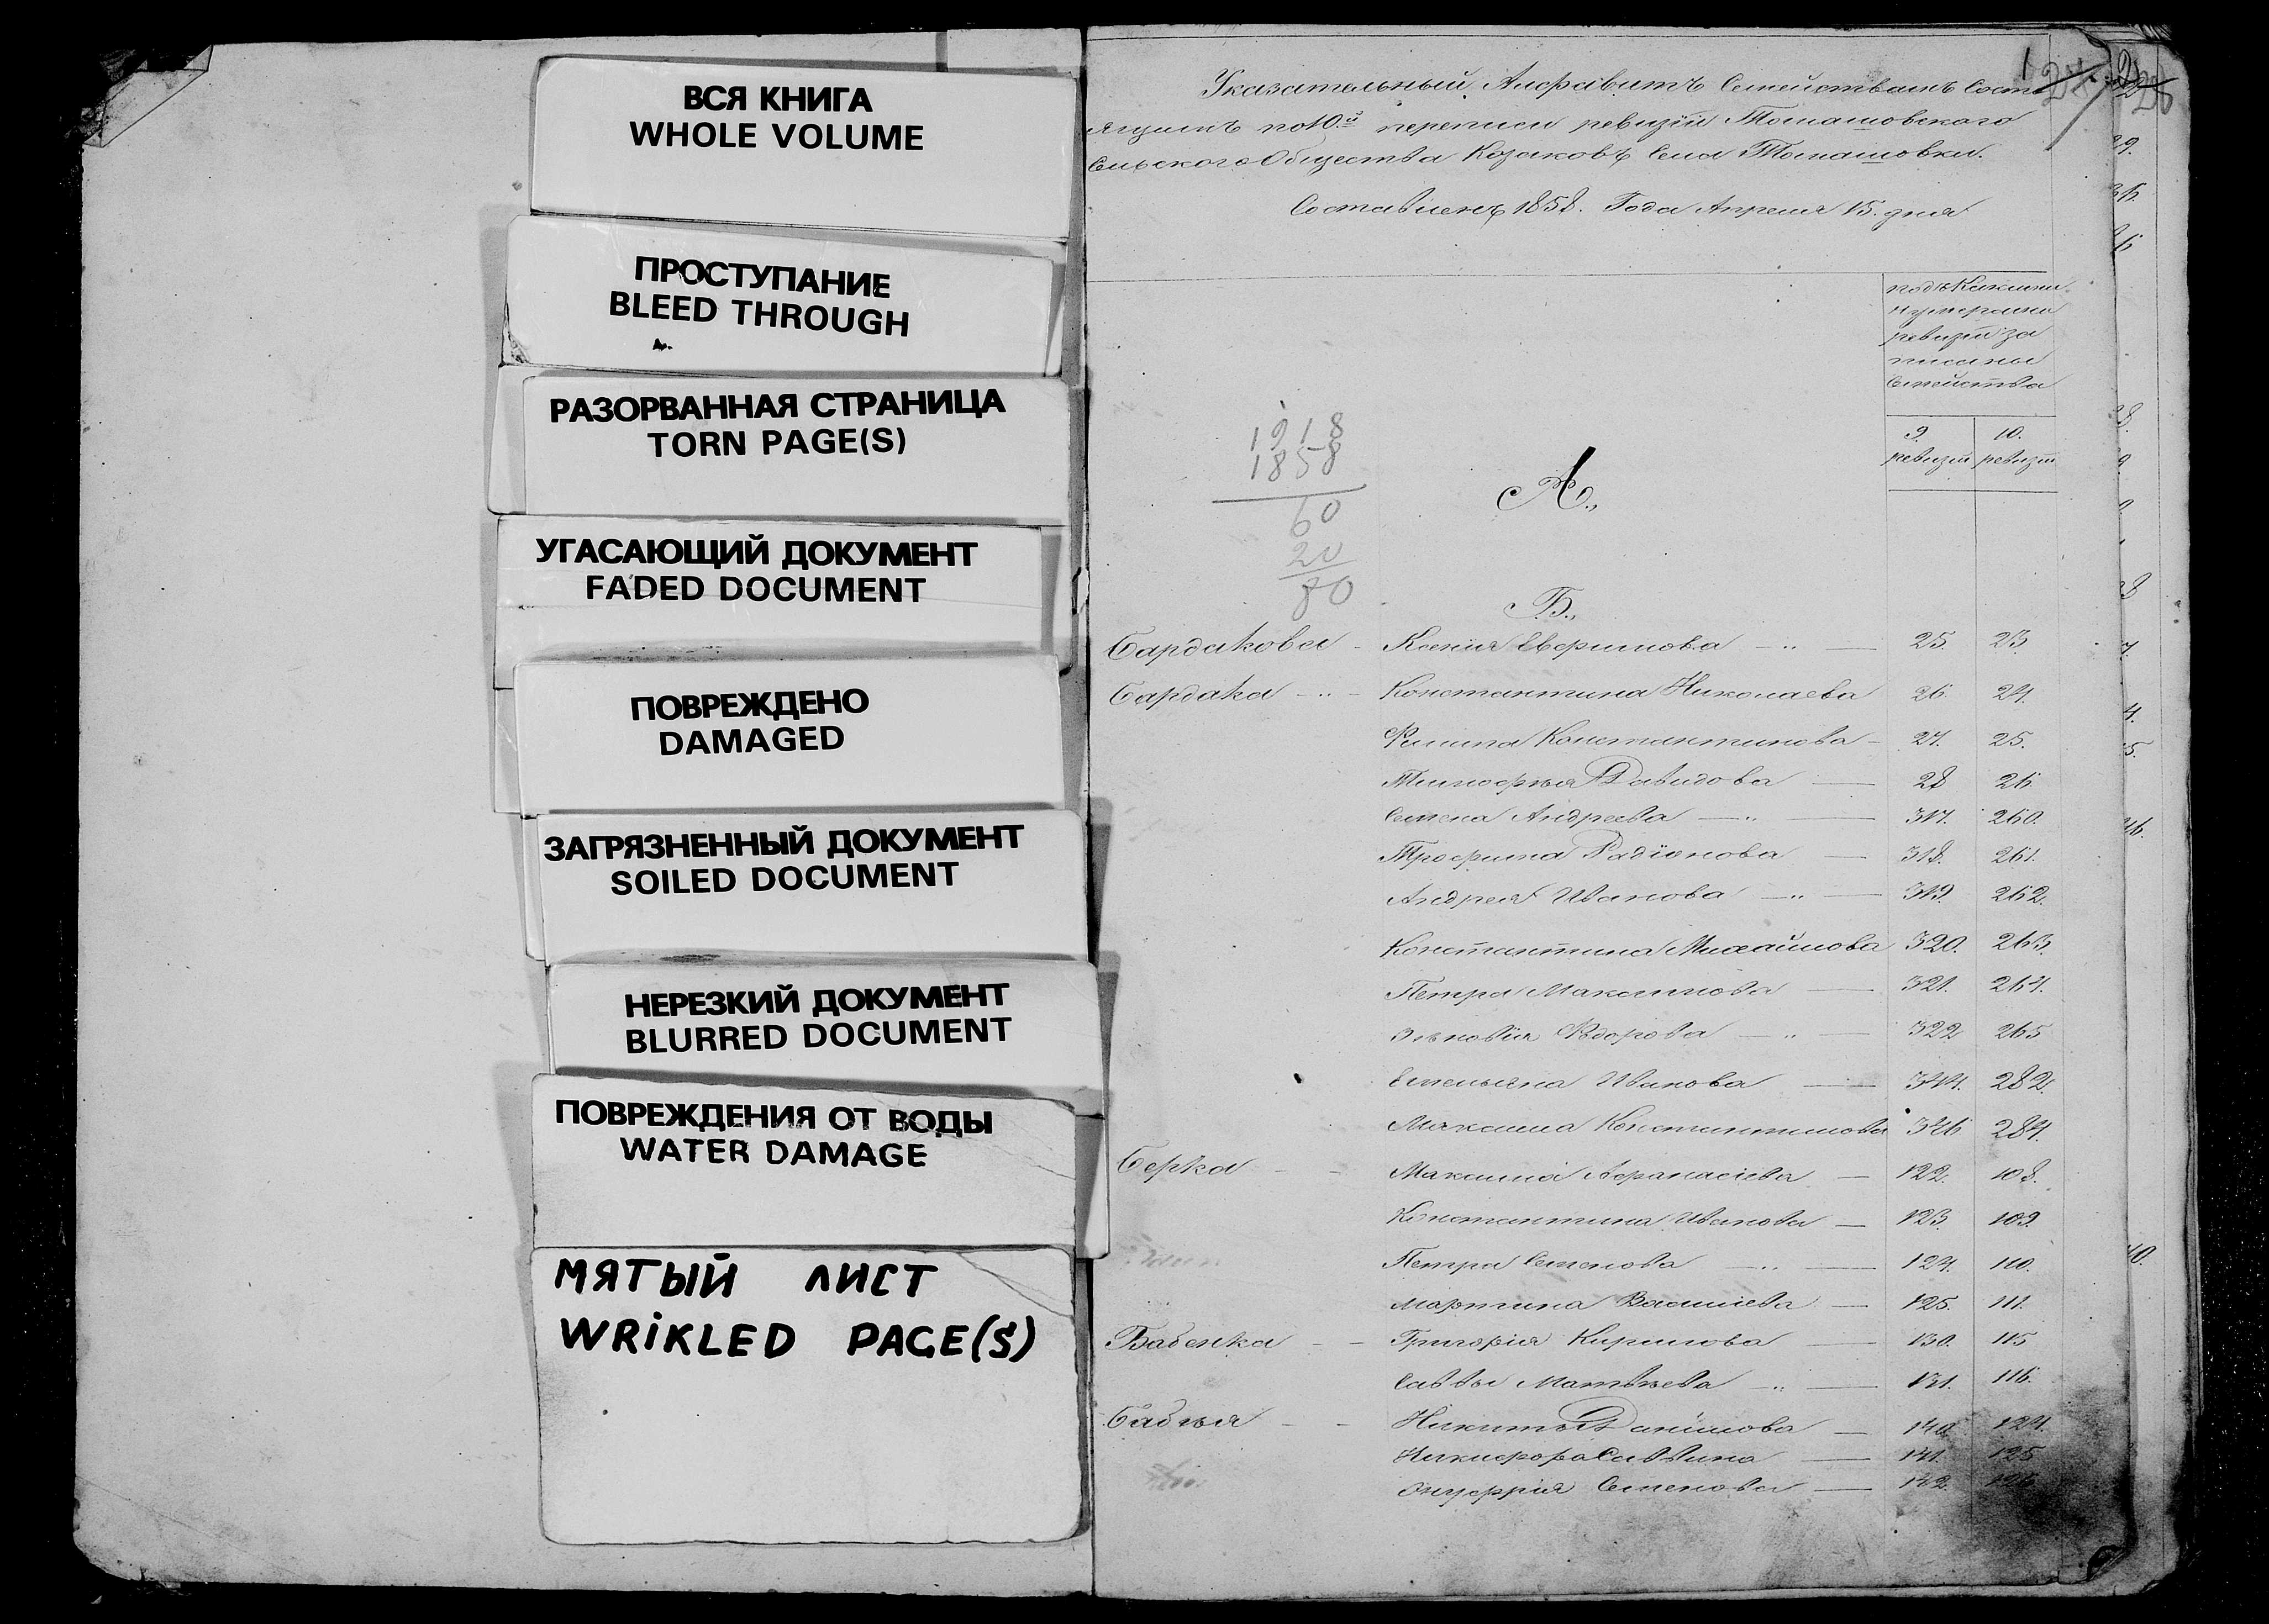 ВСЯ КНИГА
WHOLE VOLUME
ПРОСТУПАНИЕ
BLEED THROUGH
РАЗОРВАННАЯ СТРАНИЦА
TORN PAGE(S)
УГАСАЮЩИЙ ДОКУМЕНТ
FADED DOCUMENT
ПОВРЕЖДЕНО
DAMAGED
ЗАГРЯЗНЕННЫЙ ДОКУМЕНТ
SOILED DOCUMENT
НЕРЕЗКИЙ ДОКУМЕНТ
BLURRED DOCUMENT
ПОВРЕЖДЕНИЯ ОТ ВОДЫ
WATER DAMAGE
МЯТЫЙ ЛИСТ
WRIKLED PAGE(S)
1
Указательный Алфавитъ Семействамъ Состо
ящимъ по 10.й переписи ревизіи Томашовского
Сельского Общества Козаковъ Села Томашовки.
Составленъ 1858. Года Апреля 15. дня
подъ Какими
нумерами
ревизіи за
писаны
Семейства
9. 10.
ревизіи ревизіи
1918
1858
60
20
80
А.,
Б.,
Бардакова - Ксенія Евфимова 25. 23.
Бардака - Константина Николаева 26. 24.
Филипа Константинова - 27. 25.
Тимофея Давидова 28 26
Семена Андреева 317. 260.
Трофима Радіонова 318. 261.
Андрея Иванова 319. 262.
Константина Михайлова 320. 263.
Петра Максимова 321. 264.
Зѣновія Федорова 322 265
Емельяна Иванова 344. 282.
Максима Константинова 346 284.
Берка - Максима Афанасіева 122. 108.
Константина Иванова 123. 109.
Петра Семенова 124. 110.
Мартина Василіева 125. 111.
Бабенка - Григорія Кирилова 130. 115
Саввы Матвѣева 131. 116.
Бабѣя - Никиты Данилова 140 124.
Никифора Саввина 141. 125
Онуфрія Семенова 142. 126